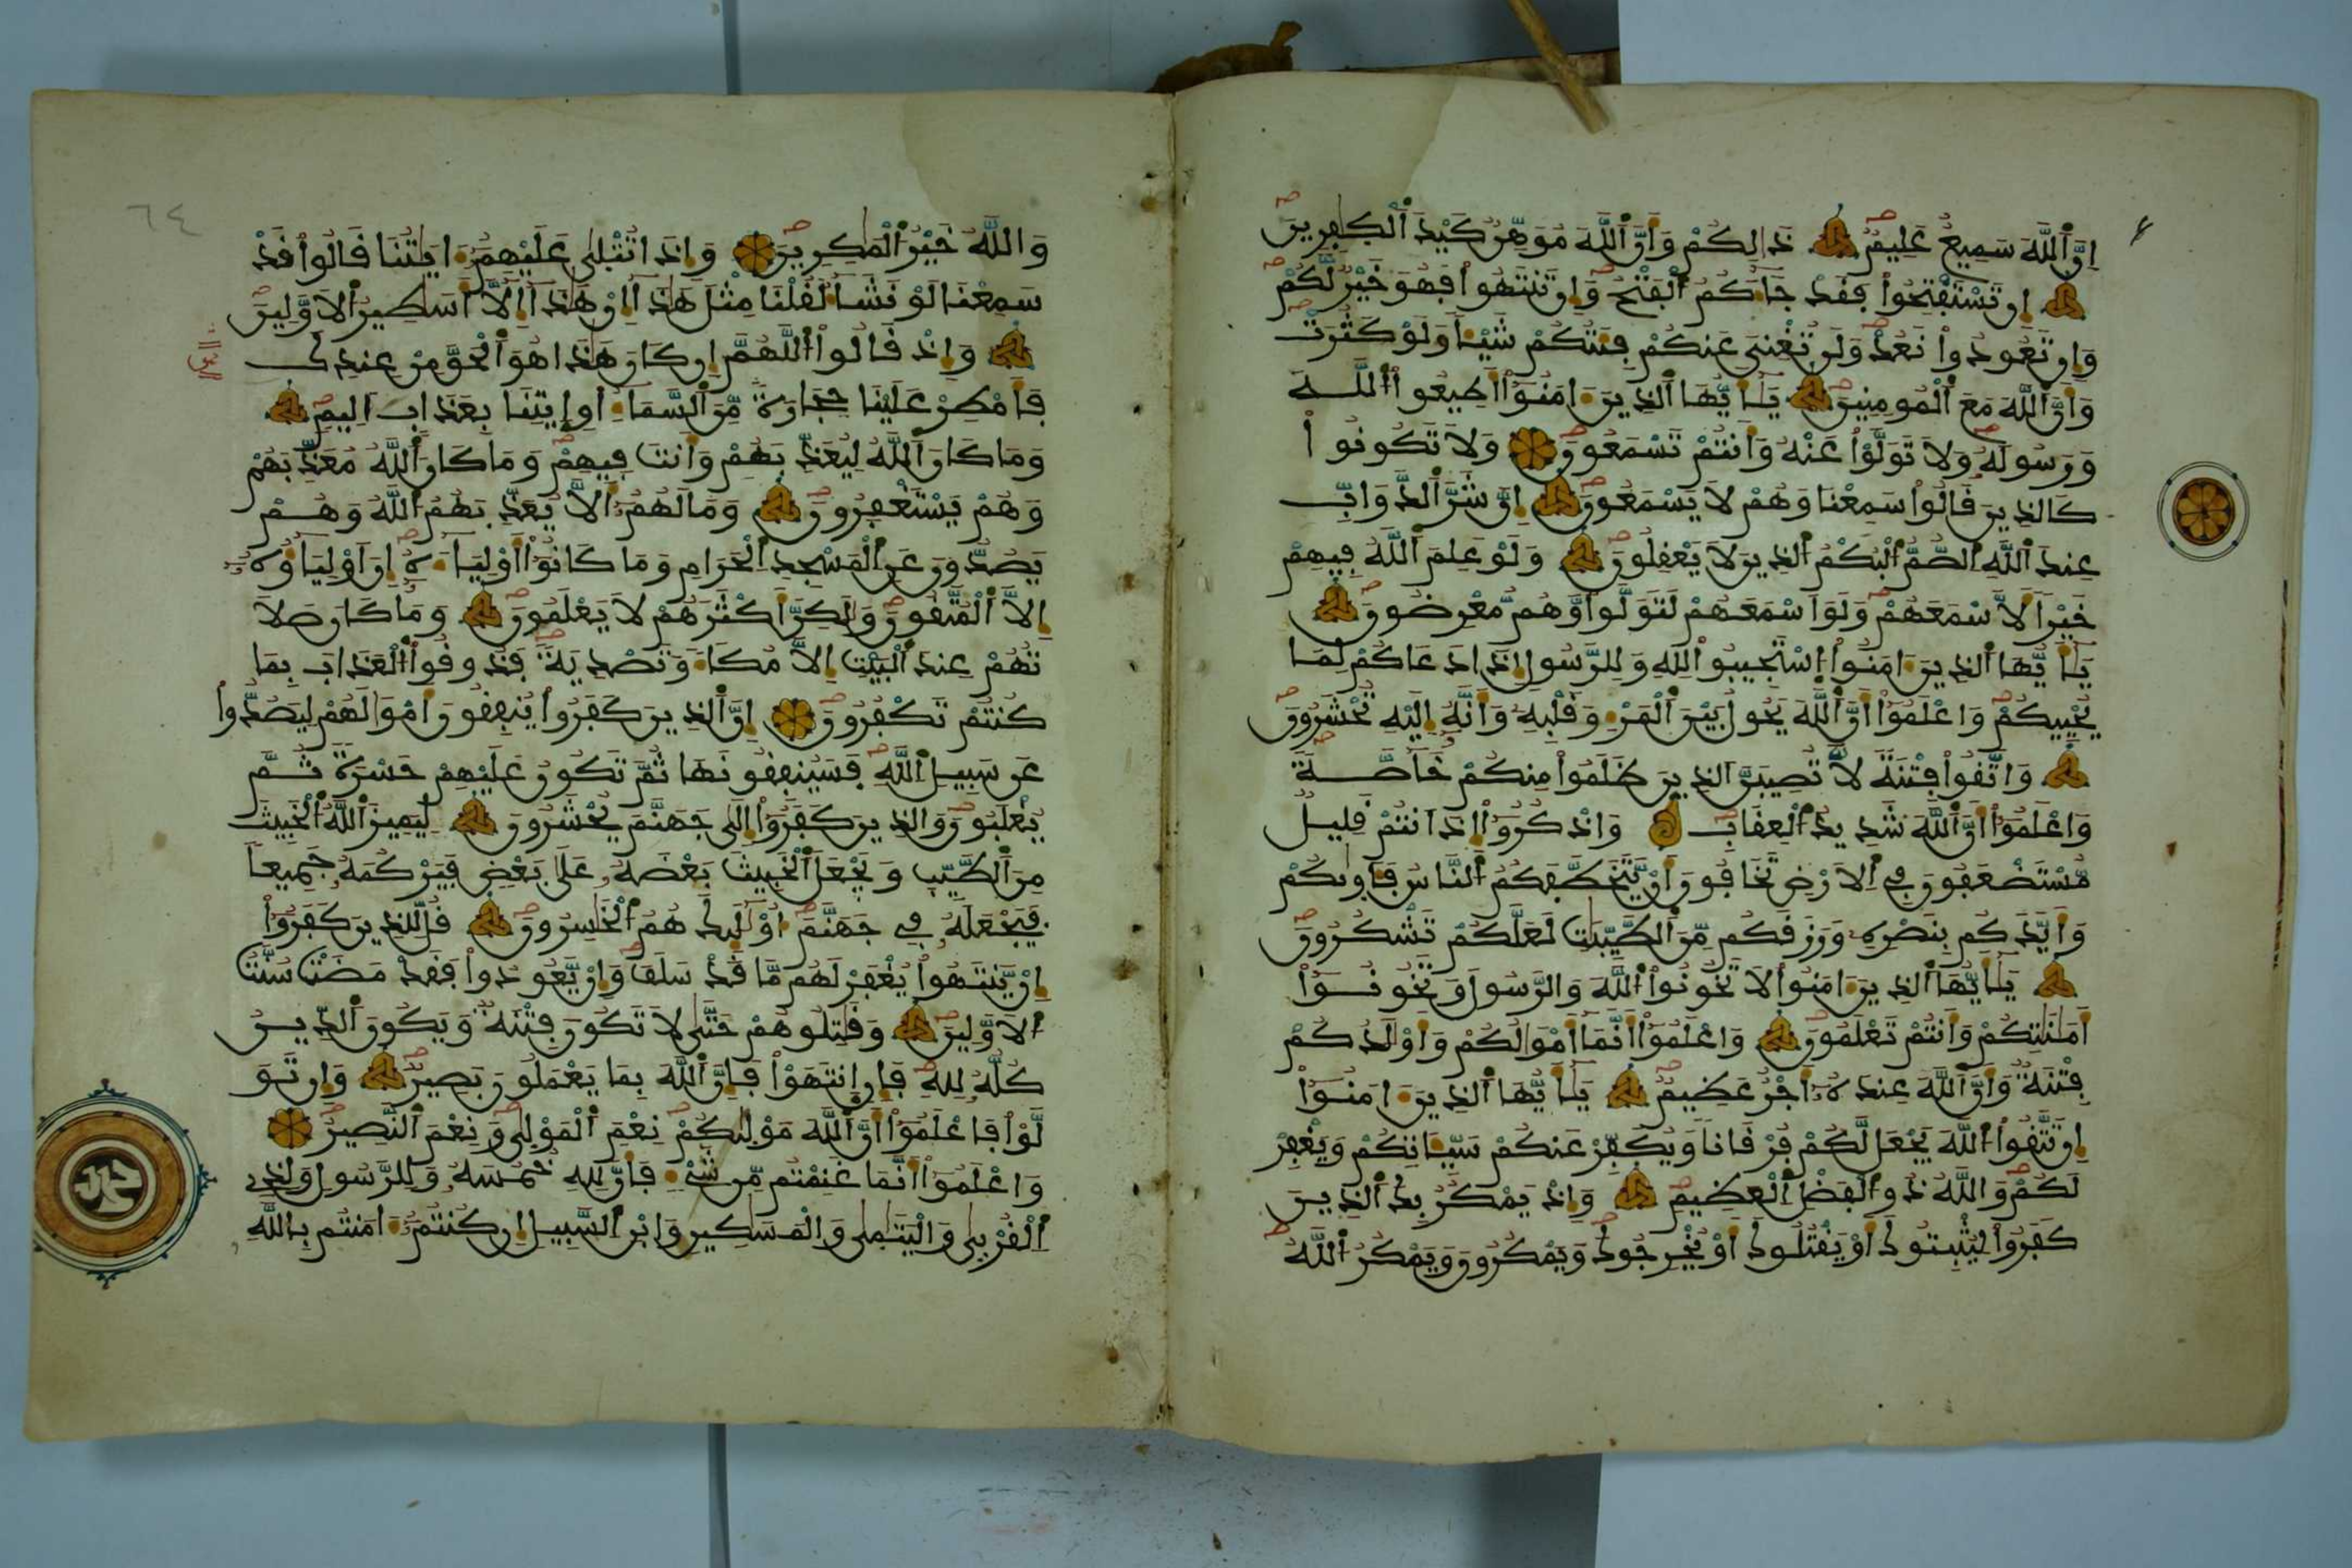 اِنَّ اَ۬للَّهَ سَمِيعٌ عَلِيمٌ ذَٰلِكُمْ وَأَنَّ اَ۬للَّهَ مُوَهِّنٌ كَيْدَ اَ۬لْكٰفِرِينَ
إِن تَسْتَفْتِحُواْ فَقَدْ جَآءَكُمُ اُ۬لْفَتْحُ وَإِن تَنتَهُواْ فَهُوَ خَيْرٌ لَّكُمْ
وَإِن تَعُودُواْ نَعُدْ وَلَن تُغْنِيَ عَنكُمْ فِئَتُكُمْ شَيْـٔاً وَلَوْ كَثُرَتْ
وَأَنَّ اَ۬للَّهَ مَعَ اَ۬لْمُومِنِينَ يَٰٓأَيُّهَا اَ۬لذِينَ ءَامَنُوٓاْ أَطِيعُواْ اُ۬للَّهَ
وَرَسُولَهُۥ وَلَا تَوَلَّوْاْ عَنْهُ وَأَنتُمْ تَسْمَعُونَ وَلَا تَكُونُواْ
كَالذِينَ قَالُواْ سَمِعْنَا وَهُمْ لَا يَسْمَعُونَ إِنَّ شَرَّ اَ۬لدَّوَآبِّ
عِندَ اَ۬للَّهِ اِ۬لصُّمُّ اُ۬لْبُكْمُ اُ۬لذِينَ لَا يَعْقِلُونَ وَلَوْ عَلِمَ اَ۬للَّهُ فِيهِمْ
خَيْراً لَّأَسْمَعَهُمْ وَلَوَ اَسْمَعَهُمْ لَتَوَلَّواْ وَّهُم مُّعْرِضُونَ
يَٰٓأَيُّهَا اَ۬لذِينَ ءَامَنُواْ اُ۪سْتَجِيبُواْ لِلهِ وَلِلرَّسُولِ إِذَا دَعَاكُمْ لِمَا
يُحْيِيكُمْ وَاعْلَمُوٓاْ أَنَّ اَ۬للَّهَ يَحُولُ بَيْنَ اَ۬لْمَرْءِ وَقَلْبِهِۦ وَأَنَّهُۥٓ إِلَيْهِ تُحْشَرُونَ
وَاتَّقُواْ فِتْنَةً لَّا تُصِيبَنَّ اَ۬لذِينَ ظَلَمُواْ مِنكُمْ خَآصَّةً
وَاعْلَمُوٓاْ أَنَّ اَ۬للَّهَ شَدِيدُ اُ۬لْعِقَابِ وَاذْكُرُوٓاْ إِذَ اَنتُمْ قَلِيلٌ
مُّسْتَضْعَفُونَ فِي اِ۬لَارْضِ تَخَافُونَ أَنْ يَّتَخَطَّفَكُمُ اُ۬لنَّاسُ فَـَٔاو۪يٰكُمْ
وَأَيَّدَكُم بِنَصْرِهِۦ وَرَزَقَكُم مِّنَ اَ۬لطَّيِّبَٰتِ لَعَلَّكُمْ تَشْكُرُونَ
يَٰٓأَيُّهَا اَ۬لذِينَ ءَامَنُواْ لَا تَخُونُواْ اُ۬للَّهَ وَالرَّسُولَ وَتَخُونُوٓاْ
أَمَٰنَٰتِكُمْ وَأَنتُمْ تَعْلَمُونَ وَاعْلَمُوٓاْ أَنَّمَآ أَمْوَٰلُكُمْ وَأَوْلَٰدُكُمْ
فِتْنَةٌ وَأَنَّ اَ۬للَّهَ عِندَهُۥٓ أَجْرٌ عَظِيمٌ يَٰٓأَيُّهَا اَ۬لذِينَ ءَامَنُوٓاْ
إِن تَتَّقُواْ اُ۬للَّهَ يَجْعَل لَّكُمْ فُرْقَاناً وَيُكَفِّرْ عَنكُمْ سَيِّـَٔاتِكُمْ وَيَغْفِرْ
لَكُمْ وَاللَّهُ ذُو اُ۬لْفَضْلِ اِ۬لْعَظِيمِ وَإِذْ يَمْكُرُ بِكَ اَ۬لذِينَ
كَفَرُواْ لِيُثْبِتُوكَ أَوْ يَقْتُلُوكَ أَوْ يُخْرِجُوكَ وَيَمْكُرُونَ وَيَمْكُرُ اُ۬للَّهُ
٦٤
وَاللَّهُ خَيْرُ اُ۬لْمَٰكِرِينَ وَإِذَا تُتْلَىٰ عَلَيْهِمُۥٓ ءَايَٰتُنَا قَالُواْ قَدْ
سَمِعْنَا لَوْ نَشَآءُ لَقُلْنَا مِثْلَ هَٰذَآ إِنْ هَٰذَآ إِلَّآ أَسَٰطِيرُ اُ۬لَاوَّلِينَ
وَإِذْ قَالُواْ اُ۬للَّهُمَّ إِن كَانَ هَٰذَا هُوَ اَ۬لْحَقَّ مِنْ عِندِكَ
فَأَمْطِرْ عَلَيْنَا حِجَارَةً مِّنَ اَ۬لسَّمَآءِ اَوِ اِ۪يتِنَا بِعَذَابٍ اَلِيمٍ
وَمَا كَانَ اَ۬للَّهُ لِيُعَذِّبَهُمْ وَأَنتَ فِيهِمْ وَمَا كَانَ اَ۬للَّهُ مُعَذِّبَهُمْ
وَهُمْ يَسْتَغْفِرُونَ وَمَا لَهُمُۥٓ أَلَّا يُعَذِّبَهُمُ اُ۬للَّهُ وَهُمْ
يَصُدُّونَ عَنِ اِ۬لْمَسْجِدِ اِ۬لْحَرَامِ وَمَا كَانُوٓاْ أَوْلِيَآءَهُۥٓ إِنَ اَوْلِيَآؤُهُۥٓ
إِلَّا اَ۬لْمُتَّقُونَ وَلَٰكِنَّ أَكْثَرَهُمْ لَا يَعْلَمُونَ وَمَا كَانَ صَلَا
تُهُمْ عِندَ اَ۬لْبَيْتِ إِلَّا مُكَآءً وَتَصْدِيَةً فَذُوقُواْ اُ۬لْعَذَابَ بِمَا
كُنتُمْ تَكْفُرُونَ إِنَّ اَ۬لذِينَ كَفَرُواْ يُنفِقُونَ أَمْوَٰلَهُمْ لِيَصُدُّواْ
عَن سَبِيلِ اِ۬للَّهِ فَسَيُنفِقُونَهَا ثُمَّ تَكُونُ عَلَيْهِمْ حَسْرَةً ثُمَّ
يُغْلَبُونَ وَالذِينَ كَفَرُوٓاْ إِلَىٰ جَهَنَّمَ يُحْشَرُونَ لِيَمِيزَ اَ۬للَّهُ اُ۬لْخَبِيثَ
مِنَ اَ۬لطَّيِّبِ وَيَجْعَلَ اَ۬لْخَبِيثَ بَعْضَهُۥ عَلَىٰ بَعْضٍ فَيَرْكُمَهُۥ جَمِيعاً
فَيَجْعَلَهُۥ فِي جَهَنَّمَ أُوْلَٰٓئِكَ هُمُ اُ۬لْخَٰسِرُونَ قُل لِّلذِينَ كَفَرُوٓاْ
إِنْ يَّنتَهُواْ يُغْفَرْ لَهُم مَّا قَدْ سَلَفَ وَإِنْ يَّعُودُواْ فَقَدْ مَضَتْ سُنَّتُ
اُ۬لَاوَّلِينَ وَقَٰتِلُوهُمْ حَتَّىٰ لَا تَكُونَ فِتْنَةٌ وَيَكُونَ اَ۬لدِّينُ
كُلُّهُۥ لِلهِ فَإِنِ اِ۪نتَهَوْاْ فَإِنَّ اَ۬للَّهَ بِمَا يَعْمَلُونَ بَصِيرٌ وَإِن تَوَ
لَّوْاْ فَاعْلَمُوٓاْ أَنَّ اَ۬للَّهَ مَوْلَىٰكُمْ نِعْمَ اَ۬لْمَوْلَىٰ وَنِعْمَ اَ۬لنَّصِيرُ
وَاعْلَمُوٓاْ أَنَّمَا غَنِمْتُم مِّن شَيْءٍ فَأَنَّ لِلهِ خُمُسَهُۥ وَلِلرَّسُولِ وَلِذِي
اِ۬لْقُرْبَىٰ وَالْيَتَٰمَىٰ وَالْمَسَٰكِينِ وَابْنِ اِ۬لسَّبِيلِ إِن كُنتُمُۥٓ ءَامَنتُم بِاللَّهِ